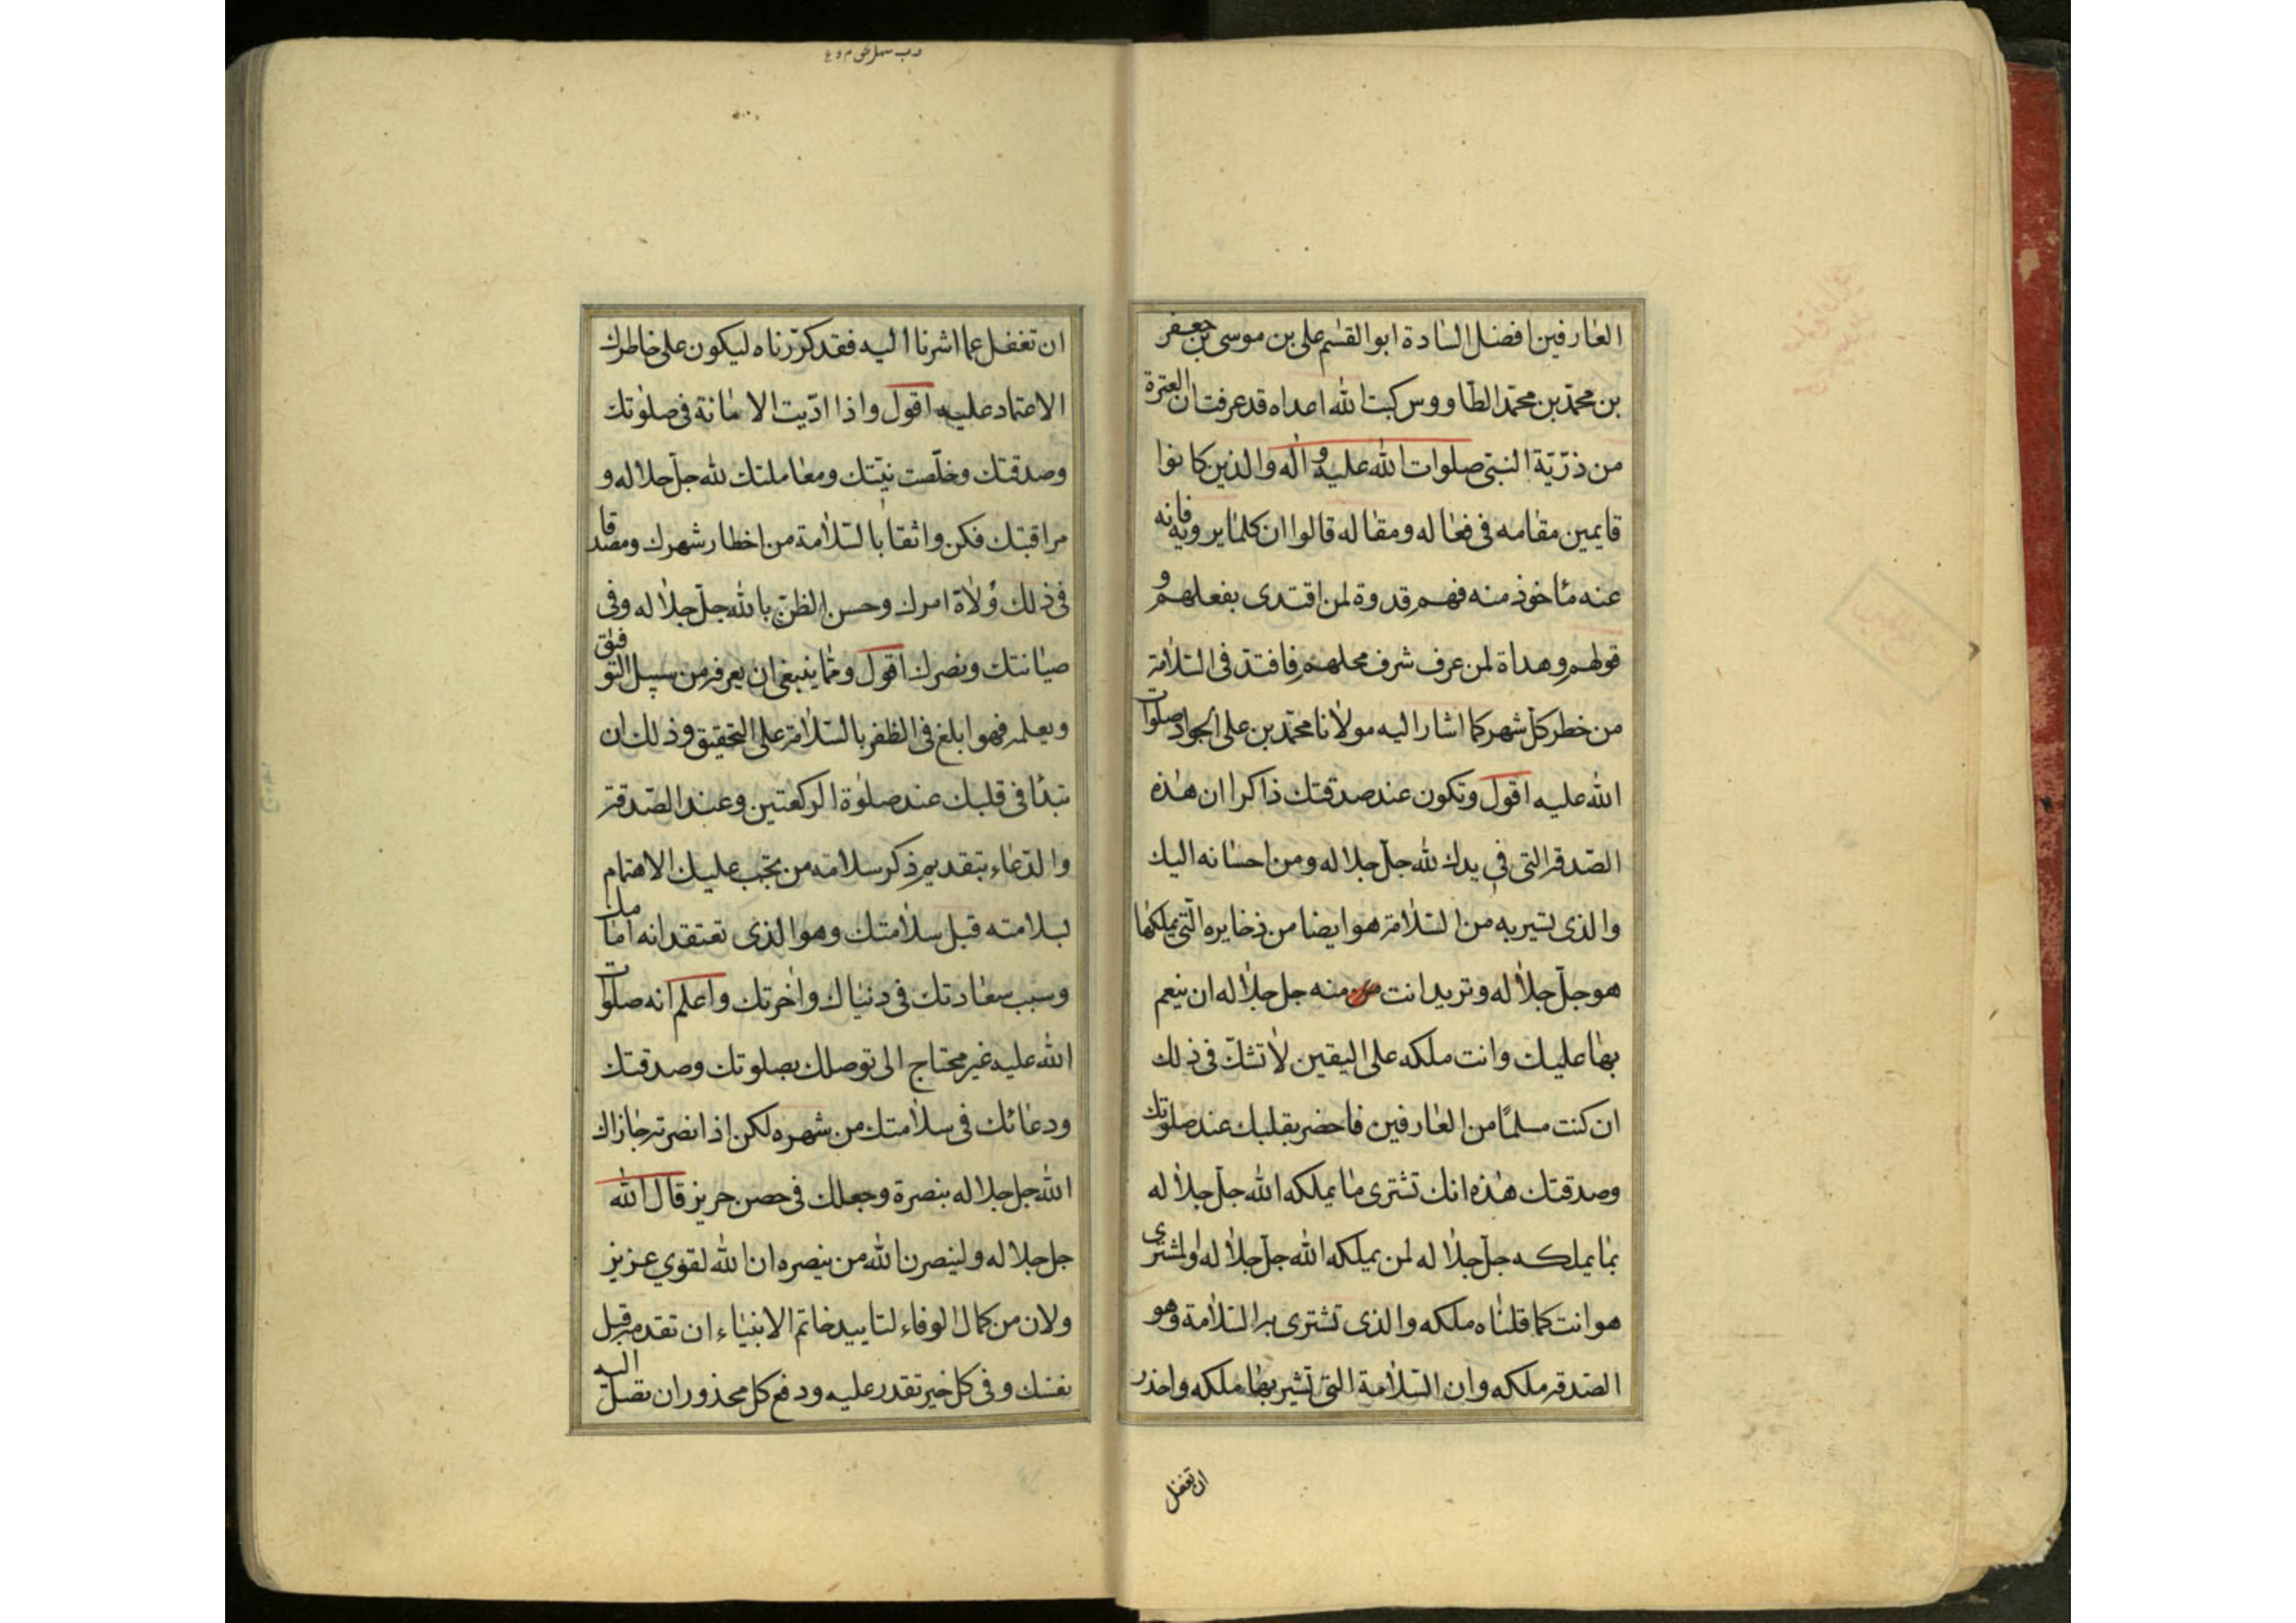 العارفين افضل السادة ابو القسم علي بن موسى بن جعفر
بن محمد بن محمد الطاووس كبت الله اعداه قد عرفت ان العترة
من ذرّيّة النبىّ صلوات الله عليه و اله والذين كانوا
قايمين مقامه فى فعاله ومقاله قالوا ان كلما يروونه فانه
عنه مأخوذ منه فهم قدوة لمن اقتدى بفعلهم و
قولهم وهداة لمن عرف شرف محلهم فاقتد فى السّلامة
من خطر كل شهر كما اشار اليه مولانا محمّد بن على الجواد صلوات
الله عليه اقول وتكون عند صدقتك ذاكرا ان هذه
الصّدقة التى في يدك لله جلّ جلاله ومن احسانه اليك
والذى تشير به من السّلامة هو ايضا من ذخايره الّتى يملكها
هو جلّ جلاله وتريد انت من منه جل جلاله ان ينعم
بها عليك وانت ملكه على اليقين لا تشكّ فى ذلك
ان كنت مسلمًا من العارفين فاحضر بقلبك عند صلوتك
وصدقتك هذه انك تشترى ما يملكه الله جلّ جلاله
بما يملكه جلّ جلاله لمن يملكه الله جلّ جلاله والمشترى
هو انت كما قلناه ملكه والذى تشترى به السّلامة وهو
الصّدقة ملكه وان السّلامة التى تشير بها ملكه واحذر
ان تغفل
ان تغفل عما اشرنا اليه فقد كرّرناه ليكون على خاطرك
الاعتماد عليه اقول واذا ادّيت الامانة فى صلوتك
وصدقتك وخلّصت نيّتك ومعاملتك لله جلّ جلاله و
مراقبتك فكن واثقا بالسّلامة من اخطار شهرك ومصدقا
فى ذلك ولاة امرك وحسن الظنّ بالله جلّ جلاله وفى
صيانتك ونصرك اقول وممّا ينبغى ان يعرفه من سبيل التوفيق
ويعلمه فهو ابلغ فى الظفر بالسّلامة على التحقيق وذلك ان
تبدأ فى قلبك عند صلوة الركعتين وعند الصّدقة
والدّعاء بتقديم ذكر سلامة من يجب عليك الاهتمام
بسلامته قبل سلامتك وهو الذى تعتقد انه امامك
وسبب سعادتك فى دنياك واخرتك واعلم انه صلوات
الله عليه غير محتاج الى توصلك بصلوتك وصدقتك
ودعائك فى سلامتك من شهره لكن اذا نصرته جازاك
الله جل جلاله بنصرة وجعلك فى حصن حريز قال الله
جل جلاله ولينصرن الله من ينصره ان الله لقوي عزيز
ولان من كمال الوفاء لتاييد خاتم الانبياء ان تقدمه قبل
نفسك وفى كل خير تقدر عليه ودفع كل محذور ان يصل اليه